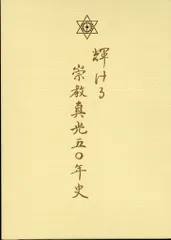 輝ける
崇教真光五〇年史